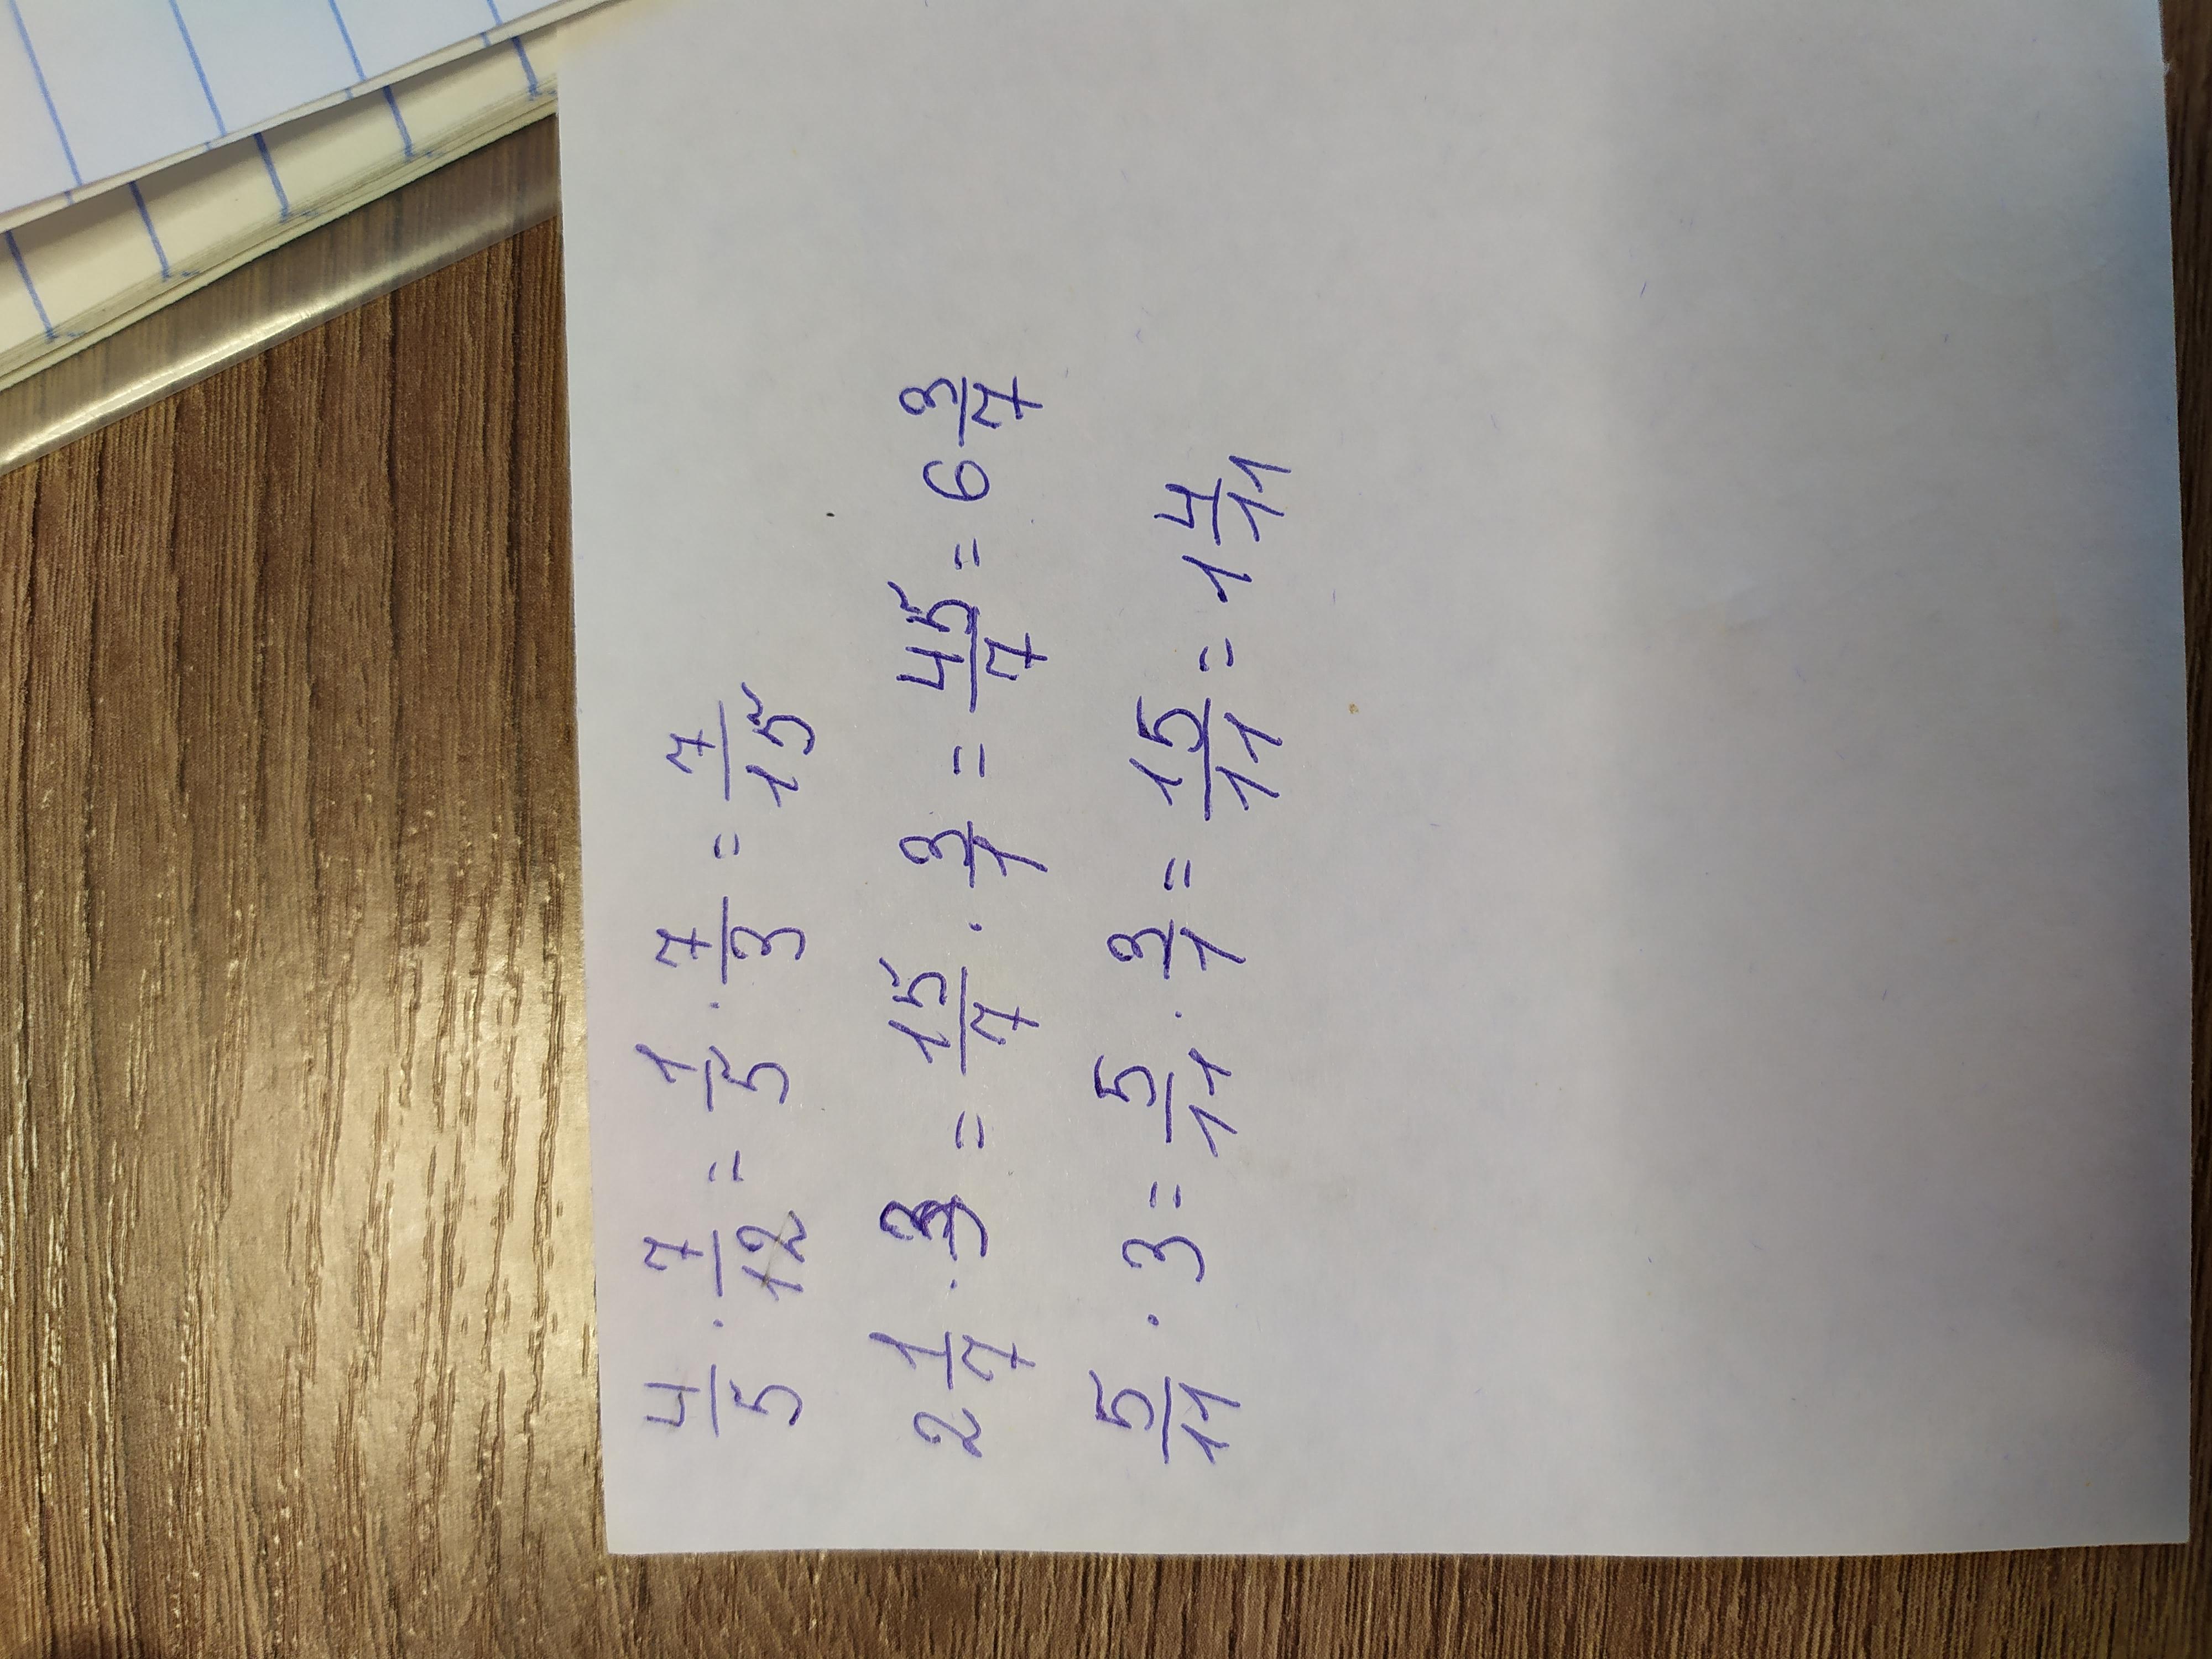 4/5 · 7/12 = 1/5 · 7/3 = 7/15
2 1/7 · 3 = 15/7 · 3/1 = 45/7 = 6 3/7
5/11 · 3 = 5/11 · 3/1 = 15/11 = 1 4/11